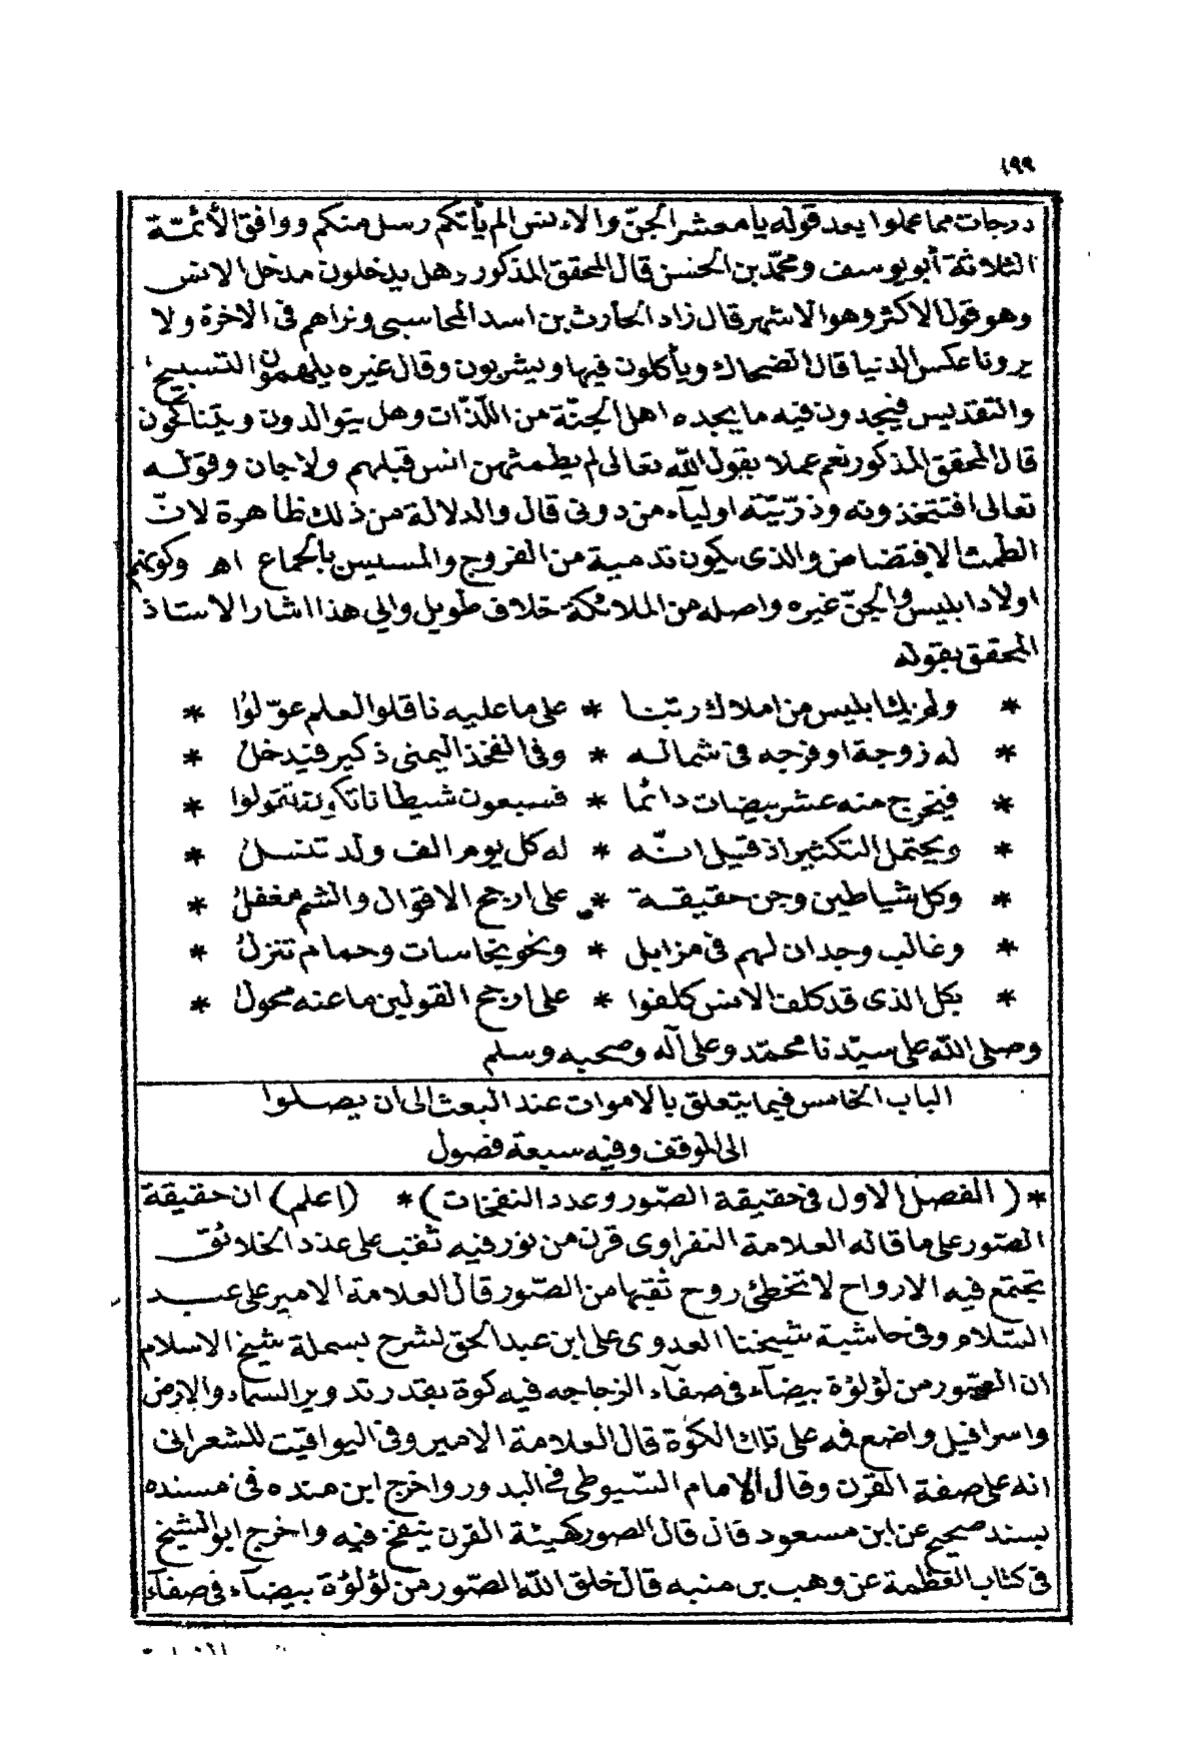 ١٩٩
درجات مما عملوا بعد قوله يا معشر الجنّ والانس الم يأتكم رسل منكم ووافق الأئمّة
الثلاثة أبو يوسف ومحمّد بن الحسن قال المحقق المذكور وهل يدخلون مدخل الانس
وهو قول الاكثر وهو الاشهر قال زاد الحارث بن اسد المحاسبى ونراهم فى الاخرة ولا
يرونا عكس الدنيا قال الضحاك ويأكلون فيها ويشربون وقال غيره يلهمون التسبيح
والتقديس فيجدون فيه ما يجده اهل الجنّة من اللّذّات وهل يتوالدون ويتناكحون
قال المحقق المذكور نعم عملا بقول الله تعالى لم يطمثهن انس قبلهم ولا جان وقوله
تعالى افتتخذونه وذرّيّته اولياء من دونى قال والدلالة من ذلك ظاهرة لانّ
الطمث الافتضاض والذى يكون تدمية من الفروج والمسيس بالجماع اهـ وكونهم
اولاد ابليس والجنّ غيره واصله من الملائكة خلاف طويل والى هذا اشار الاستاذ
المحقق بقوله
* ولم يك ابليس من املاك ربنا * على ما عليه ناقلوا العلم عوّلوُا *
* له زوجة او فرجه فى شماله * وفى الفخذ اليمنى ذكير فيدخلُ *
* فيخرج منه عشر بيضات دائما * فسبعون شيطانا تكون تمولوا *
* ويحتمل التكثير اذ قيل انّه * له كل يوم الف ولد تنسلُ *
* وكل شياطين وجن حقيقة * على ارجح الاقوال والشم مغفلُ *
* وغالب وجدان لهم فى مزابل * ونحو نجاسات وحمام تنزلُ *
* بكل الذى قد كلف الانس كلفوا * على ارجح القولين ما عنه محولُ *
وصلى الله على سيّدنا محمّد وعلى آله وصحبه وسلم
الباب الخامس فيما يتعلق بالاموات عند البعث الى ان يصلوا
الى الموقف وفيه سبعة فصول
* ( الفصل الاول فى حقيقة الصّور وعدد النفخات ) * (اعلم) ان حقيقة
الصّور على ما قاله العلامة النفراوى قرن من نور فيه ثقب على عدد الخلائق
تجتمع فيه الارواح لا تخطئ روح ثقبها من الصّور قال العلامة الامير على عبد
السّلام وفى حاشية شيخنا العدوى على ابن عبد الحق لشرح بسملة شيخ الاسلام
ان الصّور من لؤلؤة بيضاء فى صفاء الزجاجه فيه كوة بقدر تدوير السماء والارض
واسرافيل واضع فه على تلك الكوّة قال العلامة الامير وفى اليواقيت للشعرانى
انه على صفة القرن وقال الامام السّيوطى فى البدور واخرج ابن منده فى مسنده
بسند صحيح عن ابن مسعود قال قال الصور كهيئة القرن ينفخ فيه واخرج ابو الشيخ
فى كتاب العظمة عن وهب بن منبه قال خلق الله الصّور من لؤلؤة بيضاء فى صفاء